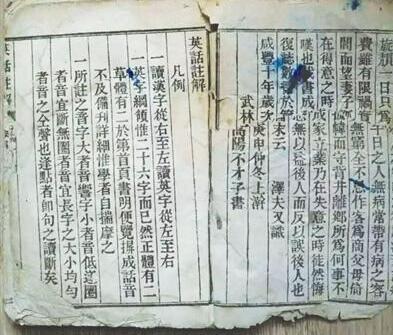 一日只爲千日之人無病常帶有病之容
費雖有限禍實無窮第一不忠作客爲商父母倚
閭而望妻子幃而守背井離鄉所爲何事不
在得意之時成家立業乃在失意之時徒然悔
嘆也茲書成無以後人而反以誤後人也
復誌數語於末云 澤夫又識
咸豐十年歲次庚申仲冬上澣
武林高陽不才子書
英話註解
凡例
一讀漢字從右至左讀英字從左至右
一英字綱領惟二十六字而已然正體有二
草體有二於第首頁書明便覽揖成話音
不及備刊詳細惟學者自揣摩之
一所註之音字大者音響字小者音低逗圈
者音宜斷無圈者音宜長字之大小均勻
者音之全聲也逢點者卽句之讀斷矣
英話註解